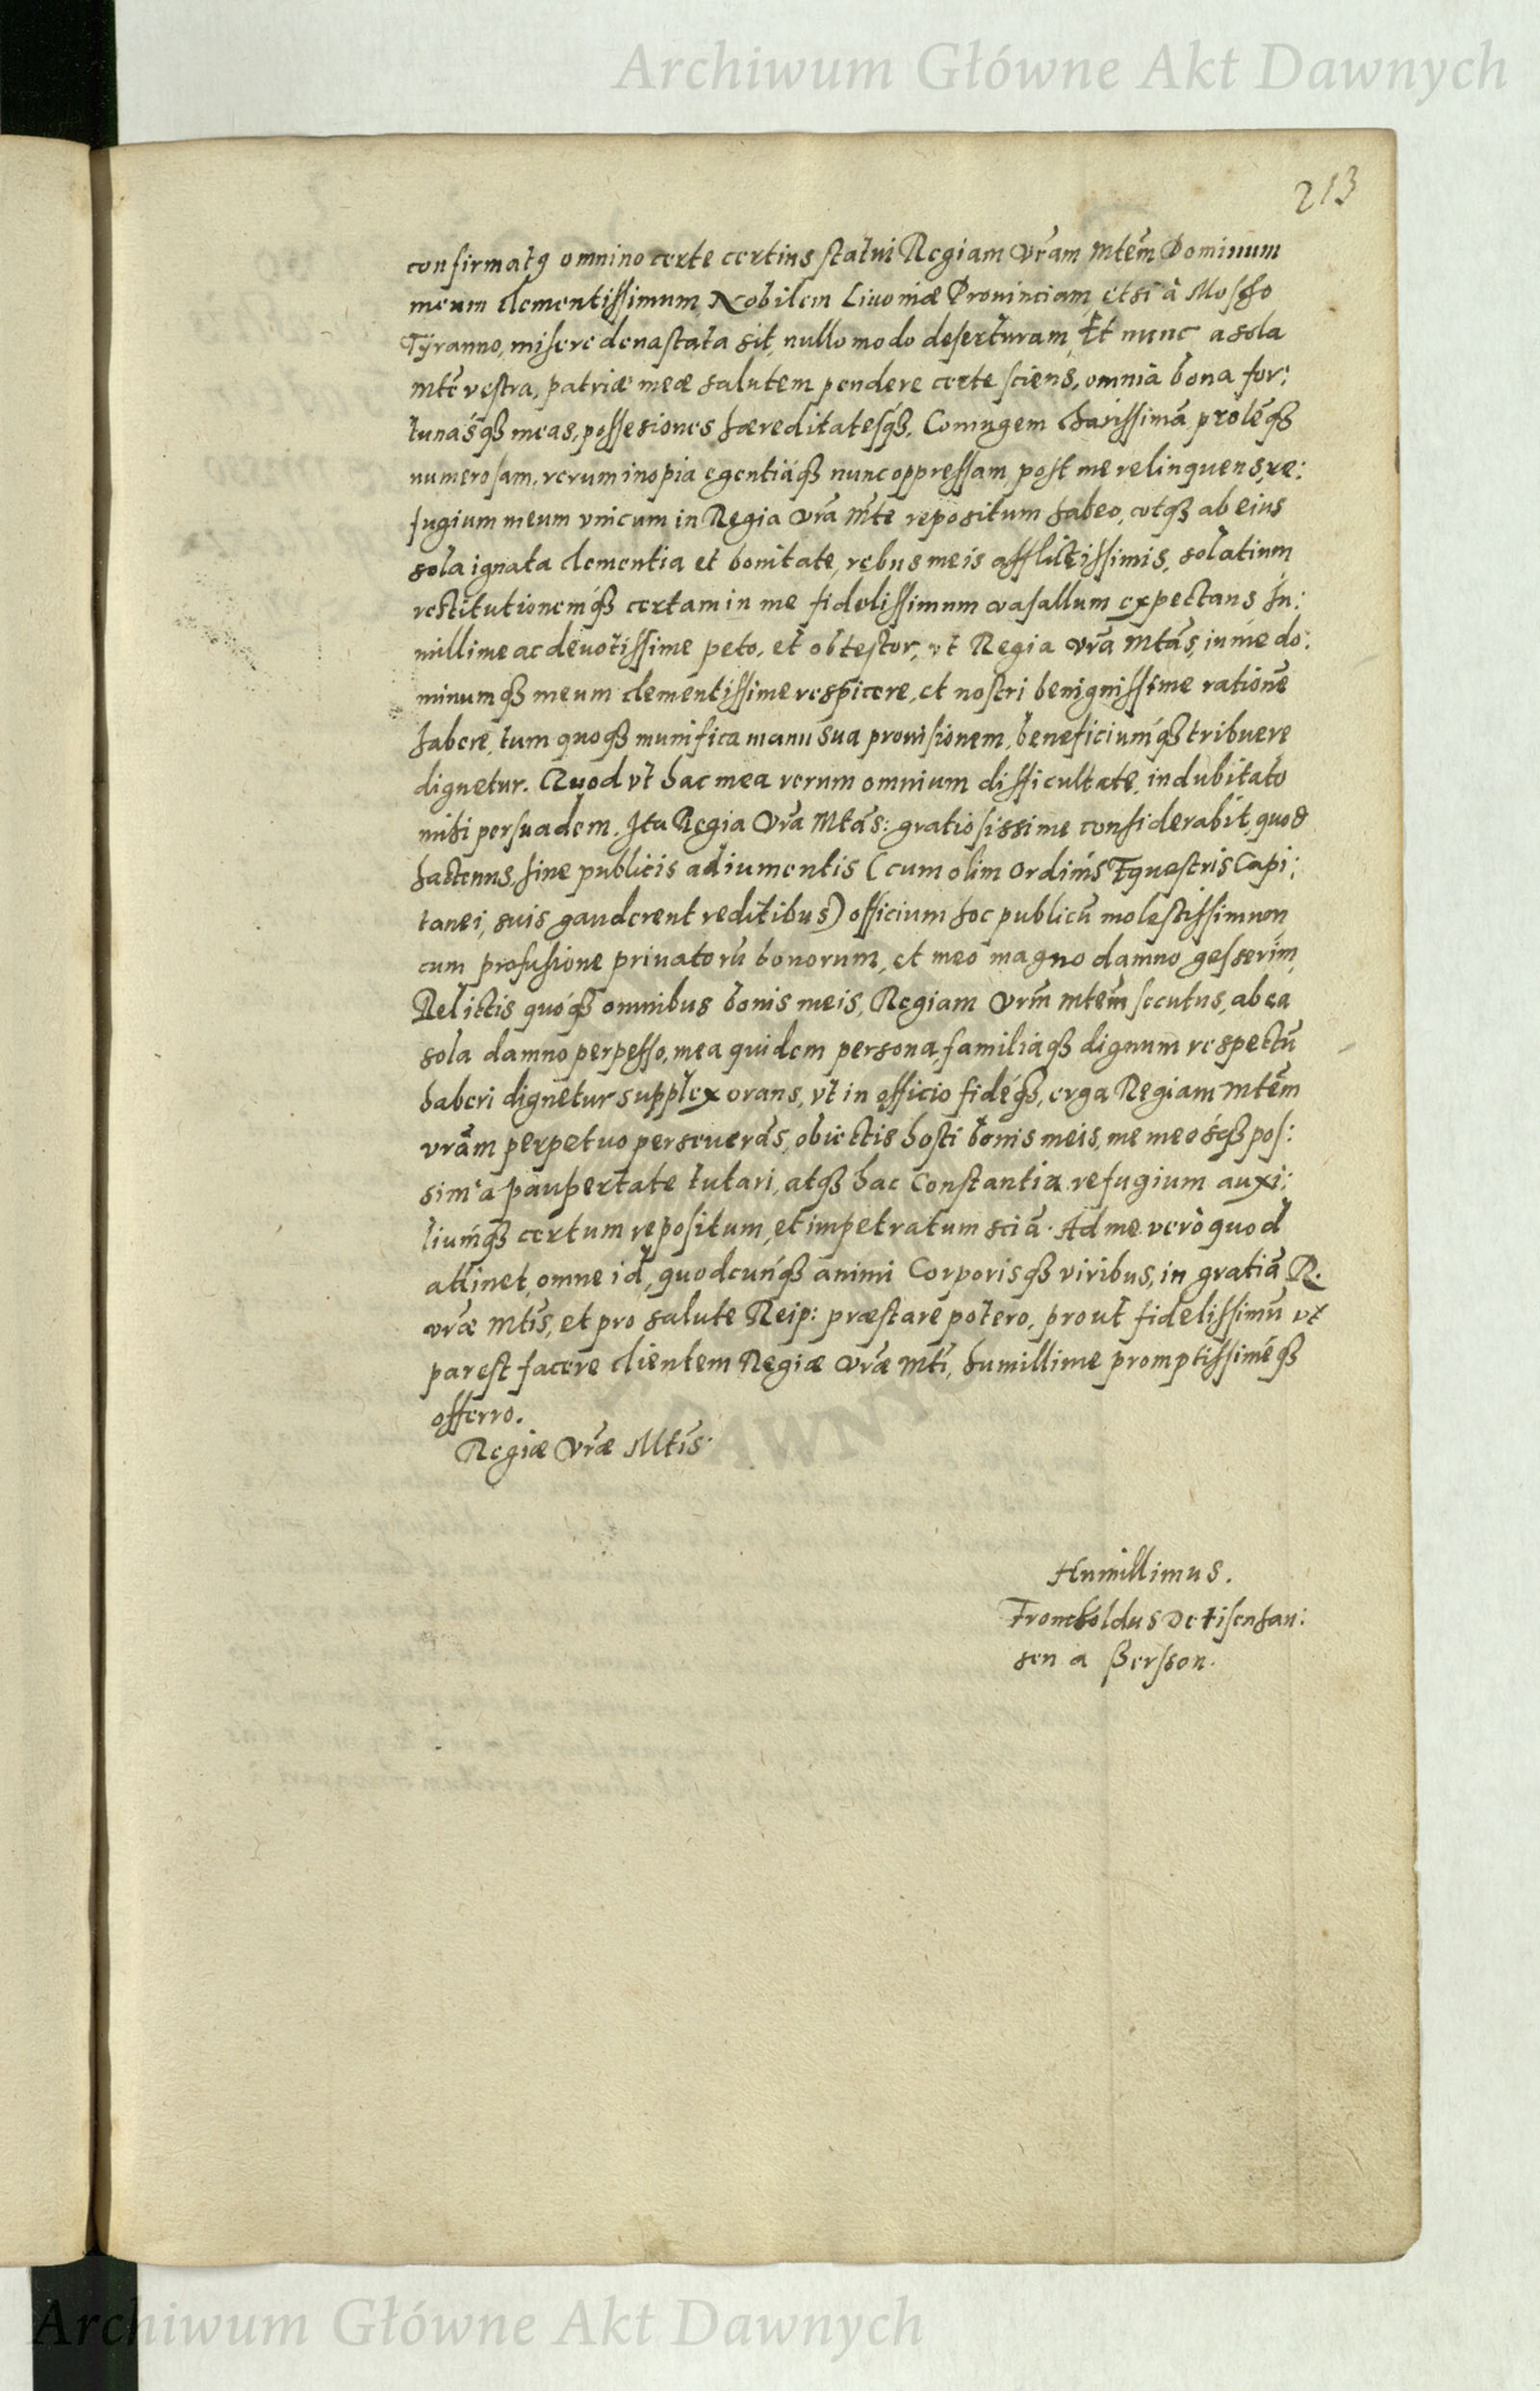 Archiwum Główne Akt Dawnych
213
confirmatq omnino certe certius statui Regiam Vr̃am Mtem̃ Dominum
meum clementissimum Nobilem Liuoniæ Prouinciam, etsi à Moscho
Tÿranno, misere deuastata sit, nullo modo deserturam, Et nunc a sola
Mte vestra, patriæ meæ salutem pendere certe sciens, omnia bona for:
tunasq́ȝ meas, possesiones hæreditatesq́ȝ, Coniugem charissimã prolẽqȝ
numerosam, rerum inopia egentiáqȝ nunc oppressam, post me relinquens, re:
fugium meum vnicum in Regia vr̃a Mte repositum habeo, vtqȝ ab eius
sola ignata clementia et bonitate, rebus meis afflictissimis, solatium
restitutionemq́ȝ certam in me fidelissimum vasallum expectans hu:
millime ac deuotissime peto, et obtestor, vt Regia vr̃a Mtas̃, in me do:
minumqȝ meum clementissime respicere, et nostri benignissime rationẽ
habere, tum quoqȝ munifica manu sua prouisionem, beneficiumq́ȝ tribuere
dignetur. Quod vt hac mea rerum omnium difficultate, indubitato
mihi persuadem. Ita Regia Vr̃a Mtas̃: gratiosissime considerabit, quod
hactenus, sine publicis adiumentis (cum olim Ordinis Equestris Capi:
tanei, suis gauderent reditibus) officium hoc publicũ molestissimum
cum profusione priuatorũ bonorum, et meo magno damno gesserim,
Relictis quoq́ȝ omnibus bonis meis, Regiam Vrm̃ Mtem̃ secutus, ab ea
sola damno perpesso, mea quidem persona, familiaqȝ dignum respectũ
haberi dignetur supplex orans, vt in officio fidéqȝ, erga Regiam Mtem̃
vrãm perpetuo perseuerãs, obiectis hosti bonis meis, me meósqȝ pos:
sim à paupertate tutari, atqȝ hac Constantia refugium auxi:
liumq́ȝ certum repositum, et impetratum sciã. Ad me verò quod
attinet, omne id, quodcunq́ȝ animi Corporisqȝ viribus, in gratiã R.
vr̃æ Mtis̃, et pro salute Reip: præstare potero, prout fidelissimũ vt
par est facere clientem Regiæ Vr̃æ Mti, humillime promptissiméqȝ
offerro.
Regiæ Vr̃æ Mtis̃.
Humillimus.
Fromholdus De tisenhau:
sen a Bersson.
Archiwum Główne Akt Dawnych